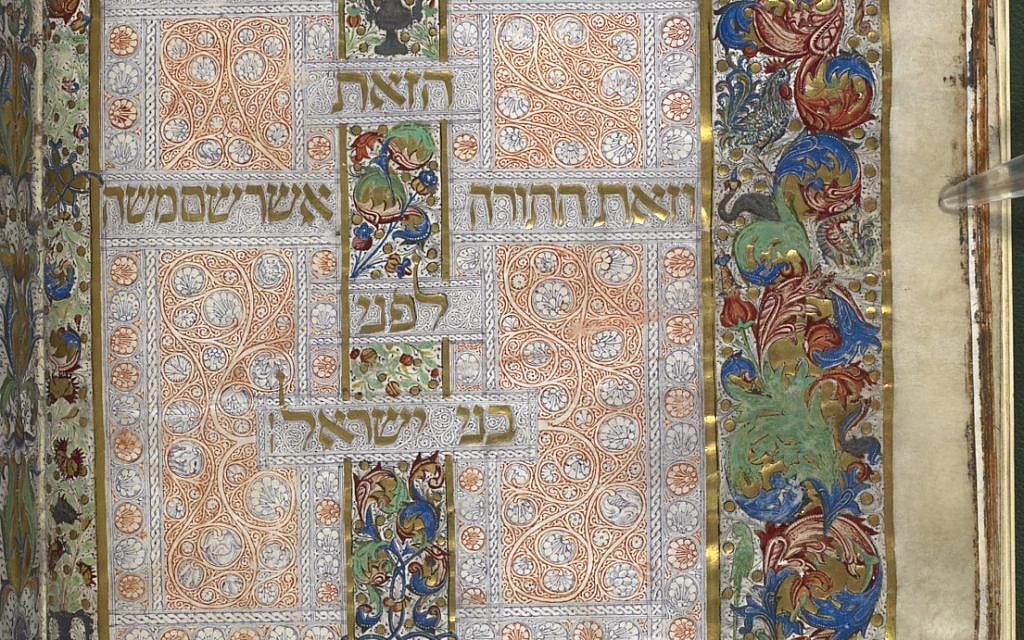 הזאת
וזאת התורה אשר שם משה
לפני
בני ישראל: